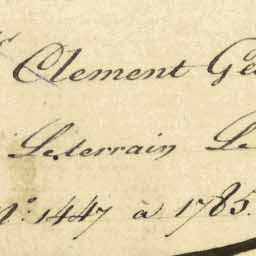 Clement Ge
Leterrain Le
N.º 1447 à 1785.